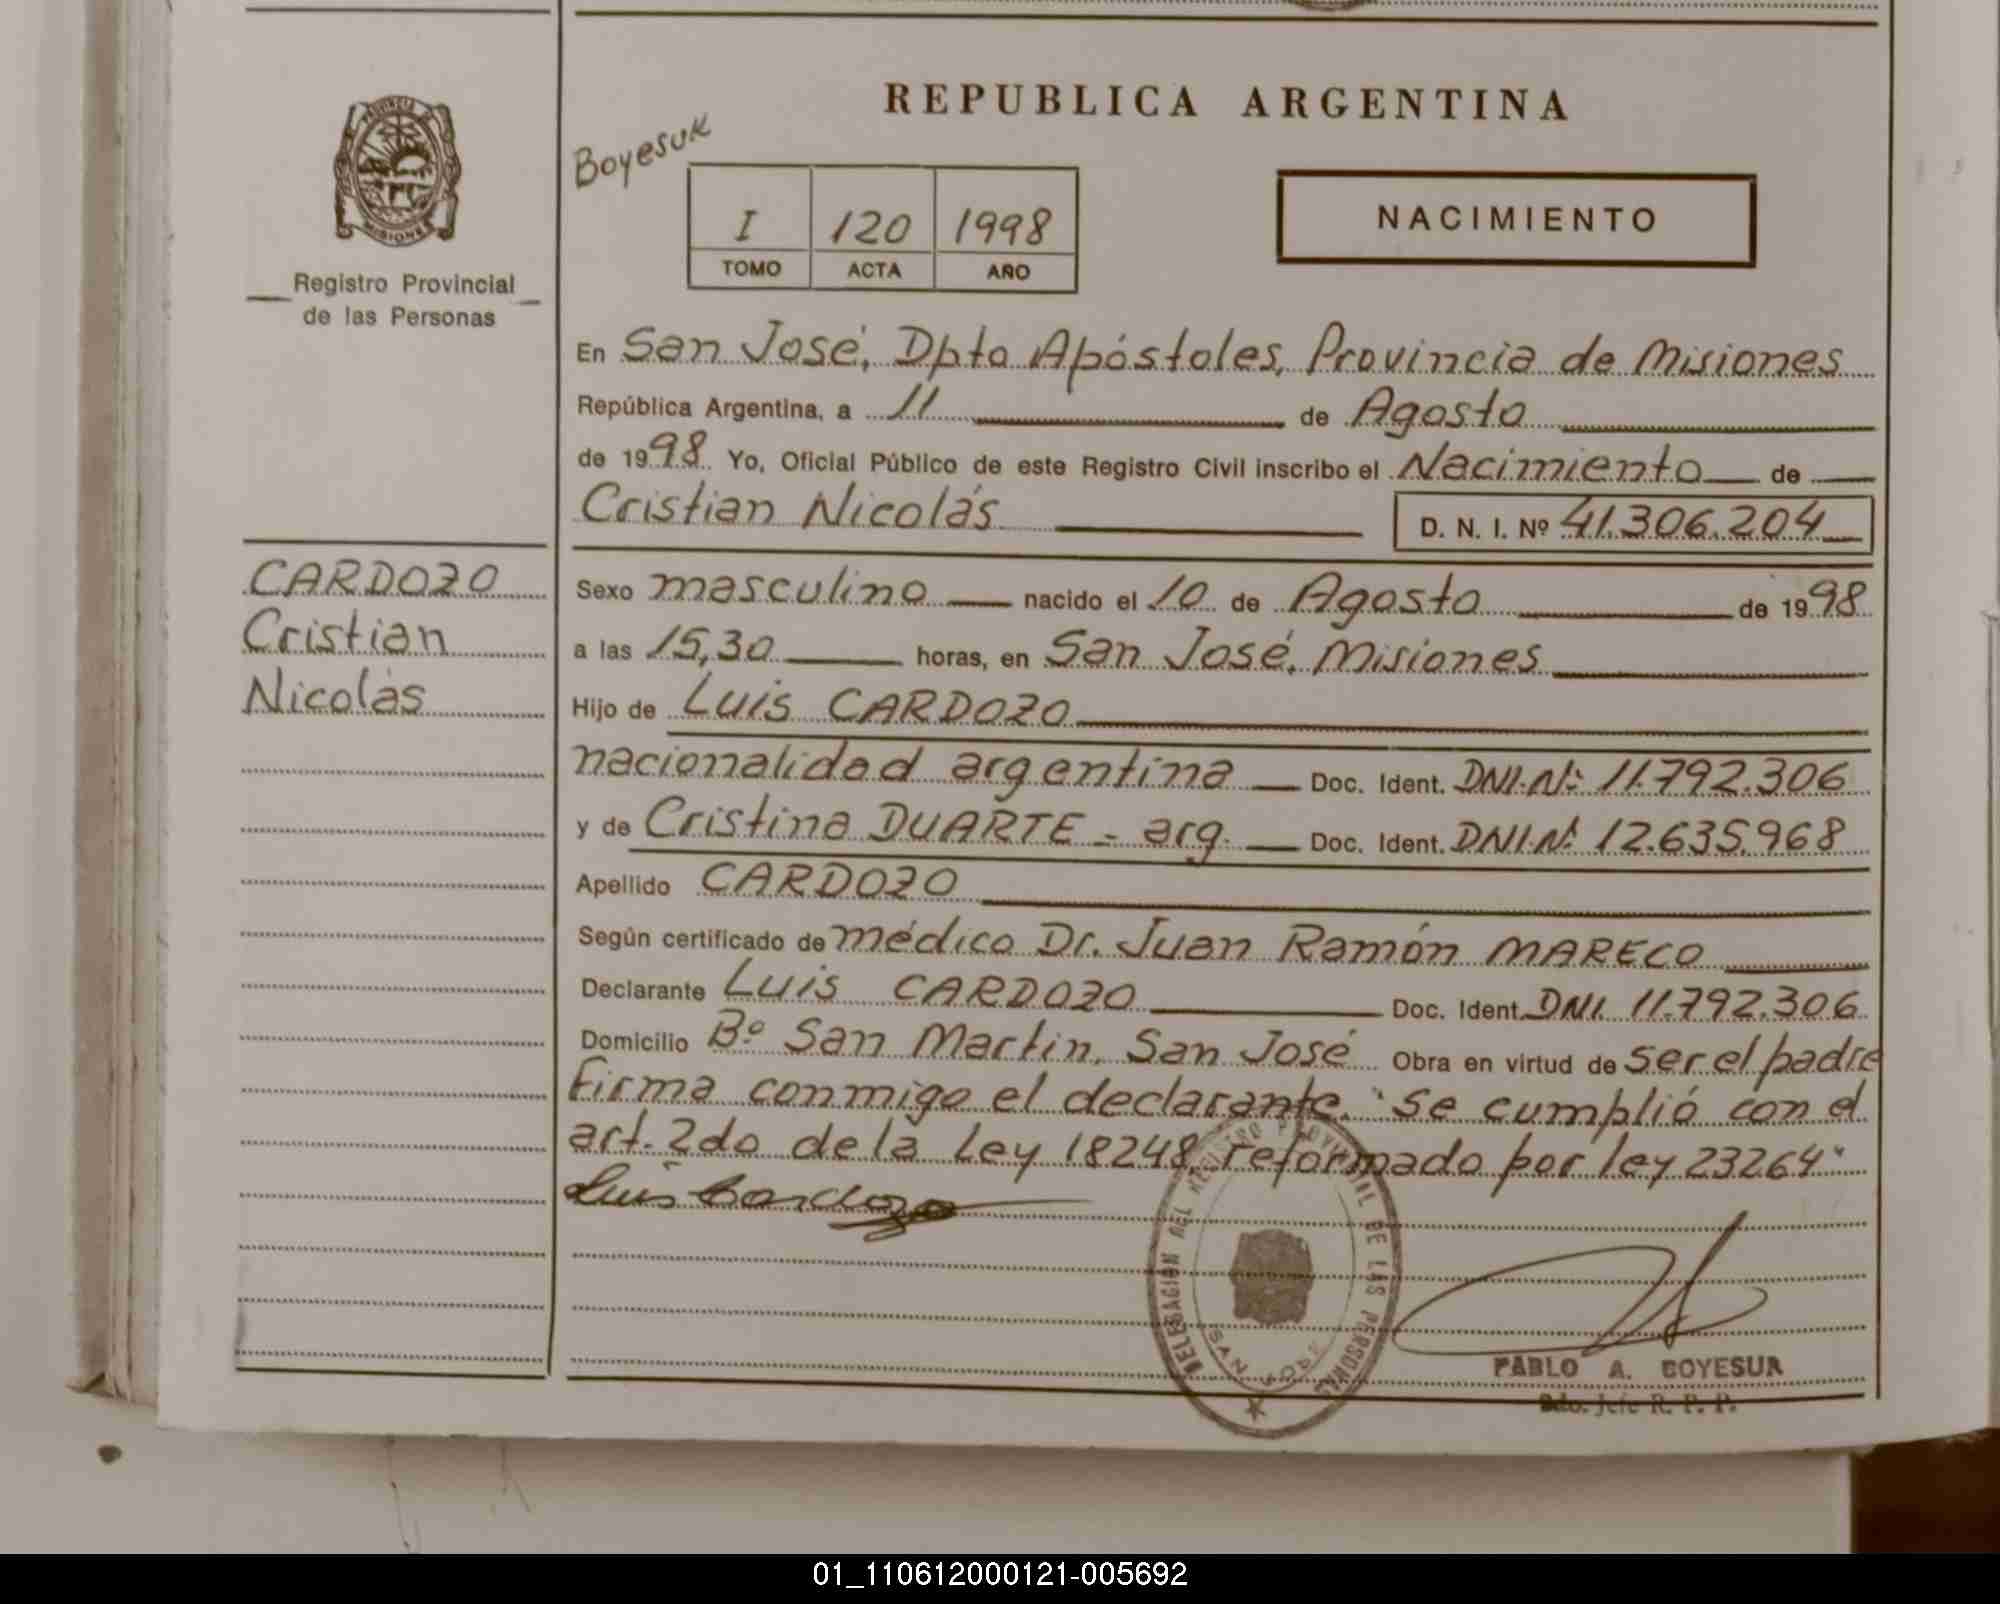 REPUBLICA ARGENTINA
Boyesuk
I 120 1998
TOMO ACTA AÑO
NACIMIENTO
PROVINCIA
MISIONES
Registro Provincial
de las Personas
En San José, Dpto Apóstoles, Provincia de Misiones
República Argentina, a 11 de Agosto
de 1998 Yo, Oficial Público de este Registro Civil inscribo el Nacimiento de
Cristian Nicolás D. N. I. Nº 41.306.204
CARDOZO
Cristian
Nicolás
Sexo masculino nacido el 10 de Agosto de 1998
a las 15,30 horas, en San José, Misiones
Hijo de Luis CARDOZO
nacionalidad argentina Doc. Ident. DNI.Nº: 11.792.306
y de Cristina DUARTE - arg. Doc. Ident. DNI.Nº: 12.635.968
Apellido CARDOZO
Según certificado de médico Dr. Juan Ramón MARECO
Declarante Luis CARDOZO Doc. Ident. DNI. 11.792.306
Domicilio Bº San Martin, San José Obra en virtud de ser el padre
Firma conmigo el declarante. "Se cumplió con el
art. 2do de la Ley 18248, reformado por ley 23264"
Luis Cardozo
DELEGACION DEL REGISTRO PROVINCIAL DE LAS PERSONAS
SAN JOSE
PABLO A. BOYESUK
2do. Jefe R. P. P.
01_110612000121-005692